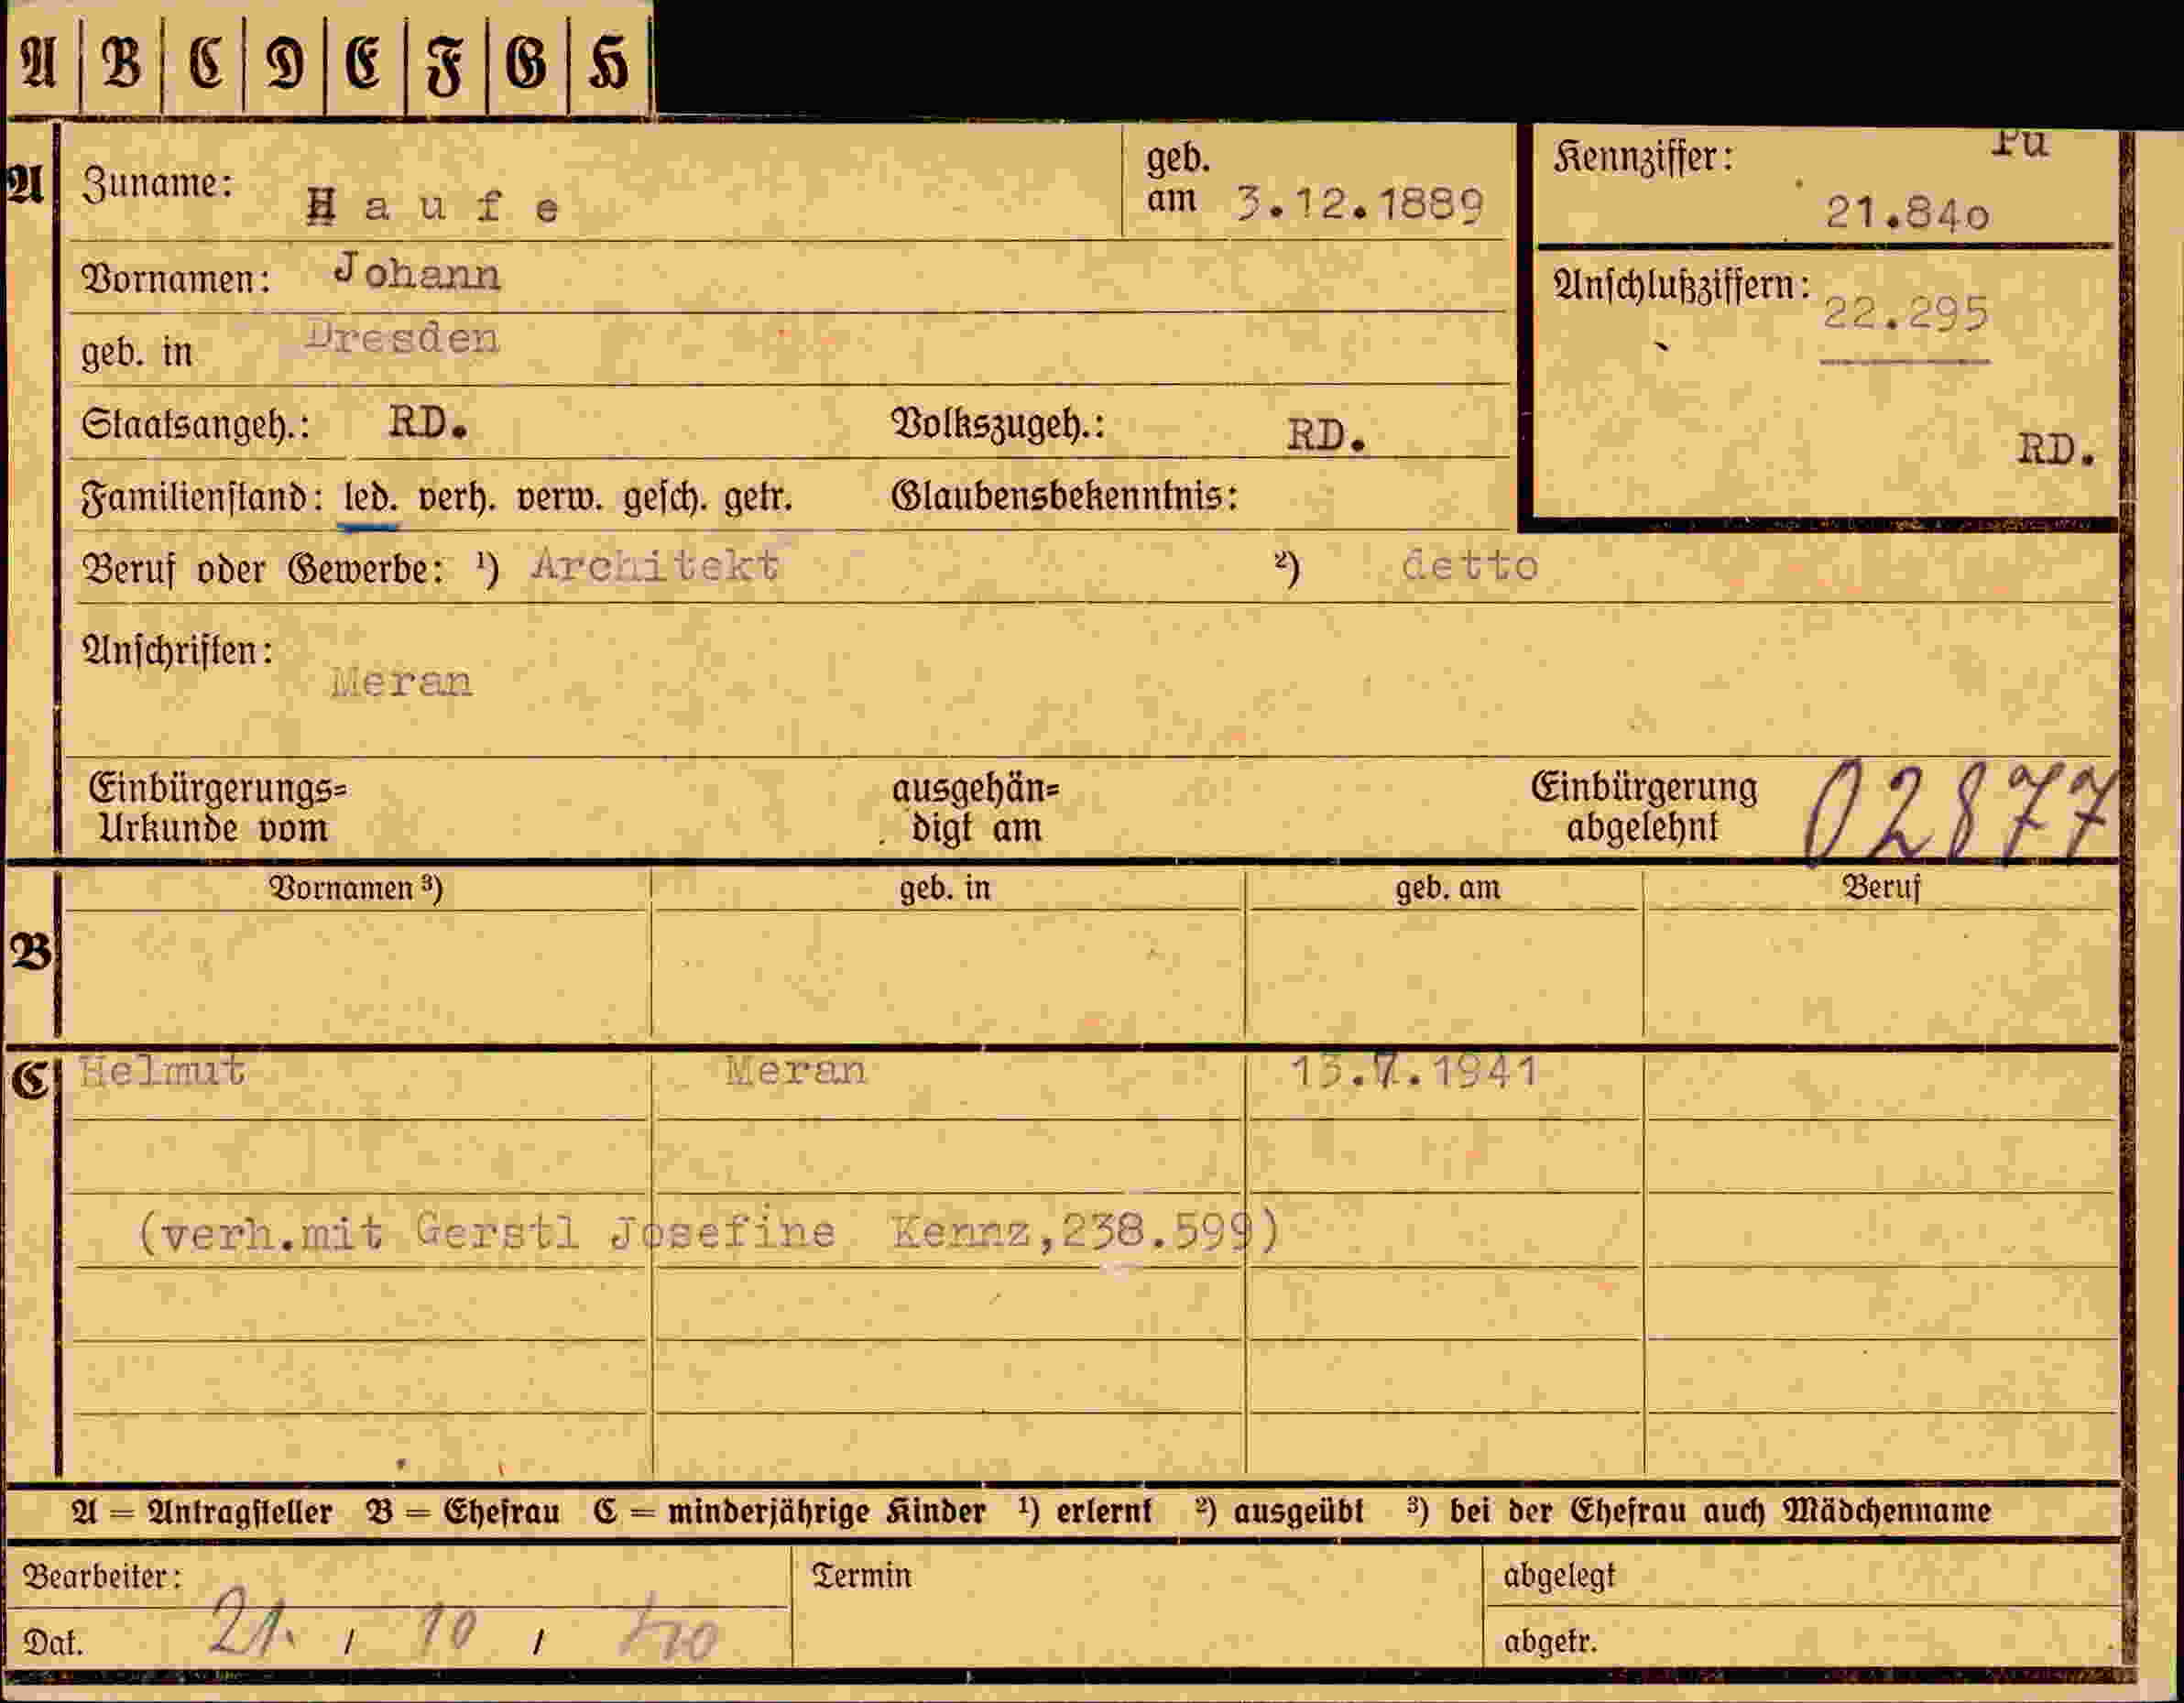 A B C D E F G H
A Zuname: Haufe geb. am 3.12.1889 Kennziffer: Pu 21.840
Vornamen: Johann
Anschlußziffern: 22.295
geb. in Dresden
Staatsangeh.: RD. Volkszugeh.: RD. RD.
Familienstand: led. verh. verw. gesch. getr. Glaubensbekenntnis:
Beruf oder Gewerbe: ¹) Architekt ²) detto
Anschriften:
Meran
Einbürgerungs= ausgehän= Einbürgerung 02877
Urkunde vom digt am abgelehnt
Vornamen ³) geb. in geb. am Beruf
B
C Helmut Meran 13.7.1941
(verh.mit Gerstl Josefine Kennz,238.599)
A = Antragsteller B = Ehefrau C = minderjährige Kinder ¹) erlernt ²) ausgeübt ³) bei der Ehefrau auch Mädchenname
Bearbeiter: Termin abgelegt
Dat. 21. / 10 / abgetr.